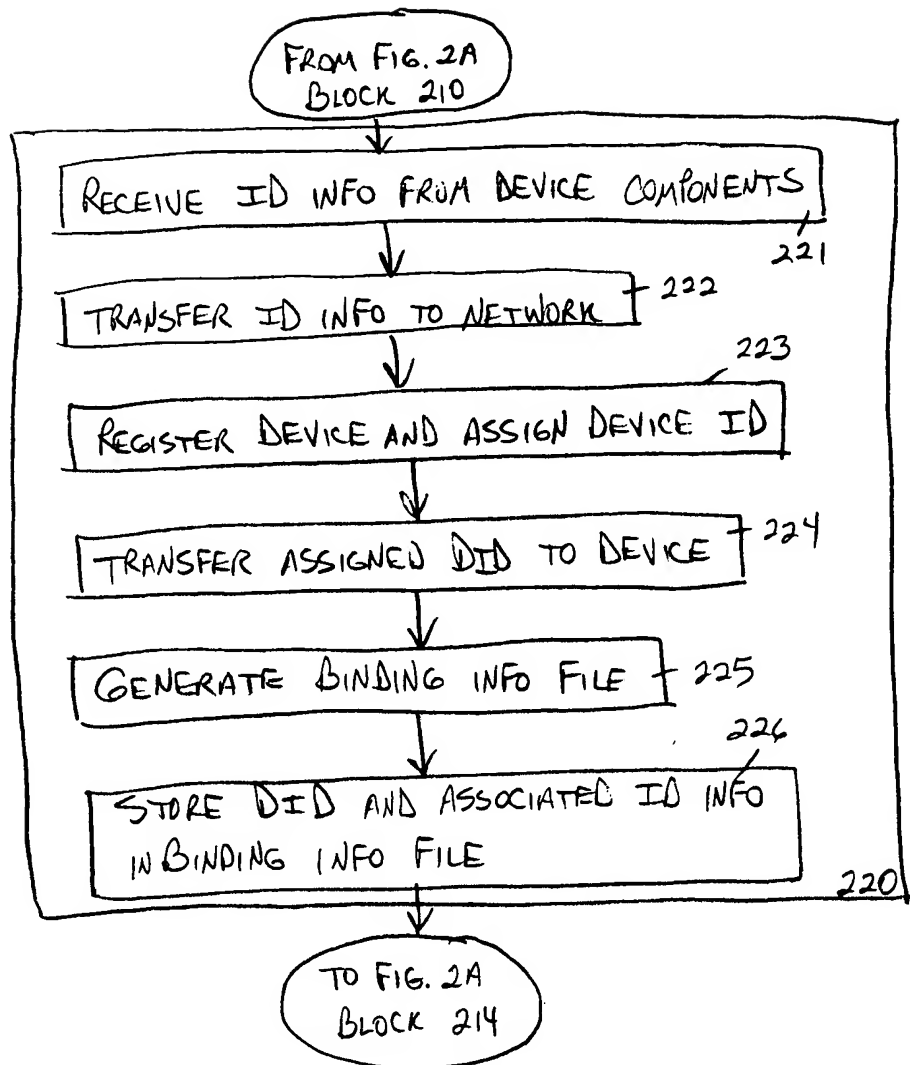 FROM FIG. 2A
BLOCK 210
RECEIVE ID INFO FROM DEVICE COMPONENTS
221
TRANSFER ID INFO TO NETWORK
222
223
REGISTER DEVICE AND ASSIGN DEVICE ID
TRANSFER ASSIGNED DID TO DEVICE
224
GENERATE BINDING INFO FILE
225
226
STORE DID AND ASSOCIATED ID INFO
IN BINDING INFO FILE
220
TO FIG. 2A
BLOCK 214